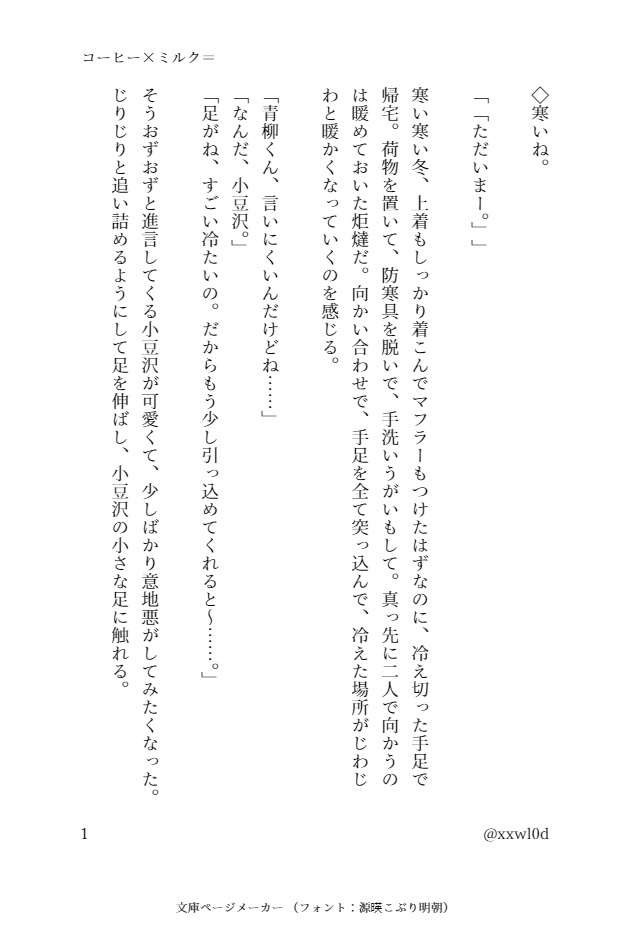 コーヒー×ミルク＝
◇寒いね。
「「ただいまー。」」
寒い寒い冬、上着もしっかり着こんでマフラーもつけたはずなのに、冷え切った手足で
帰宅。荷物を置いて、防寒具を脱いで、手洗いうがいもして。真っ先に二人で向かうの
は暖めておいた炬燵だ。向かい合わせで、手足を全て突っ込んで、冷えた場所がじわじ
わと暖かくなっていくのを感じる。
「青柳くん、言いにくいんだけどね……」
「なんだ、小豆沢。」
「足がね、すごい冷たいの。だからもう少し引っ込めてくれると〜……。」
そうおずおずと進言してくる小豆沢が可愛くて、少しばかり意地悪がしてみたくなった。
じりじりと追い詰めるようにして足を伸ばし、小豆沢の小さな足に触れる。
1
@xxwl0d
文庫ページメーカー（フォント：源暎こぶり明朝）